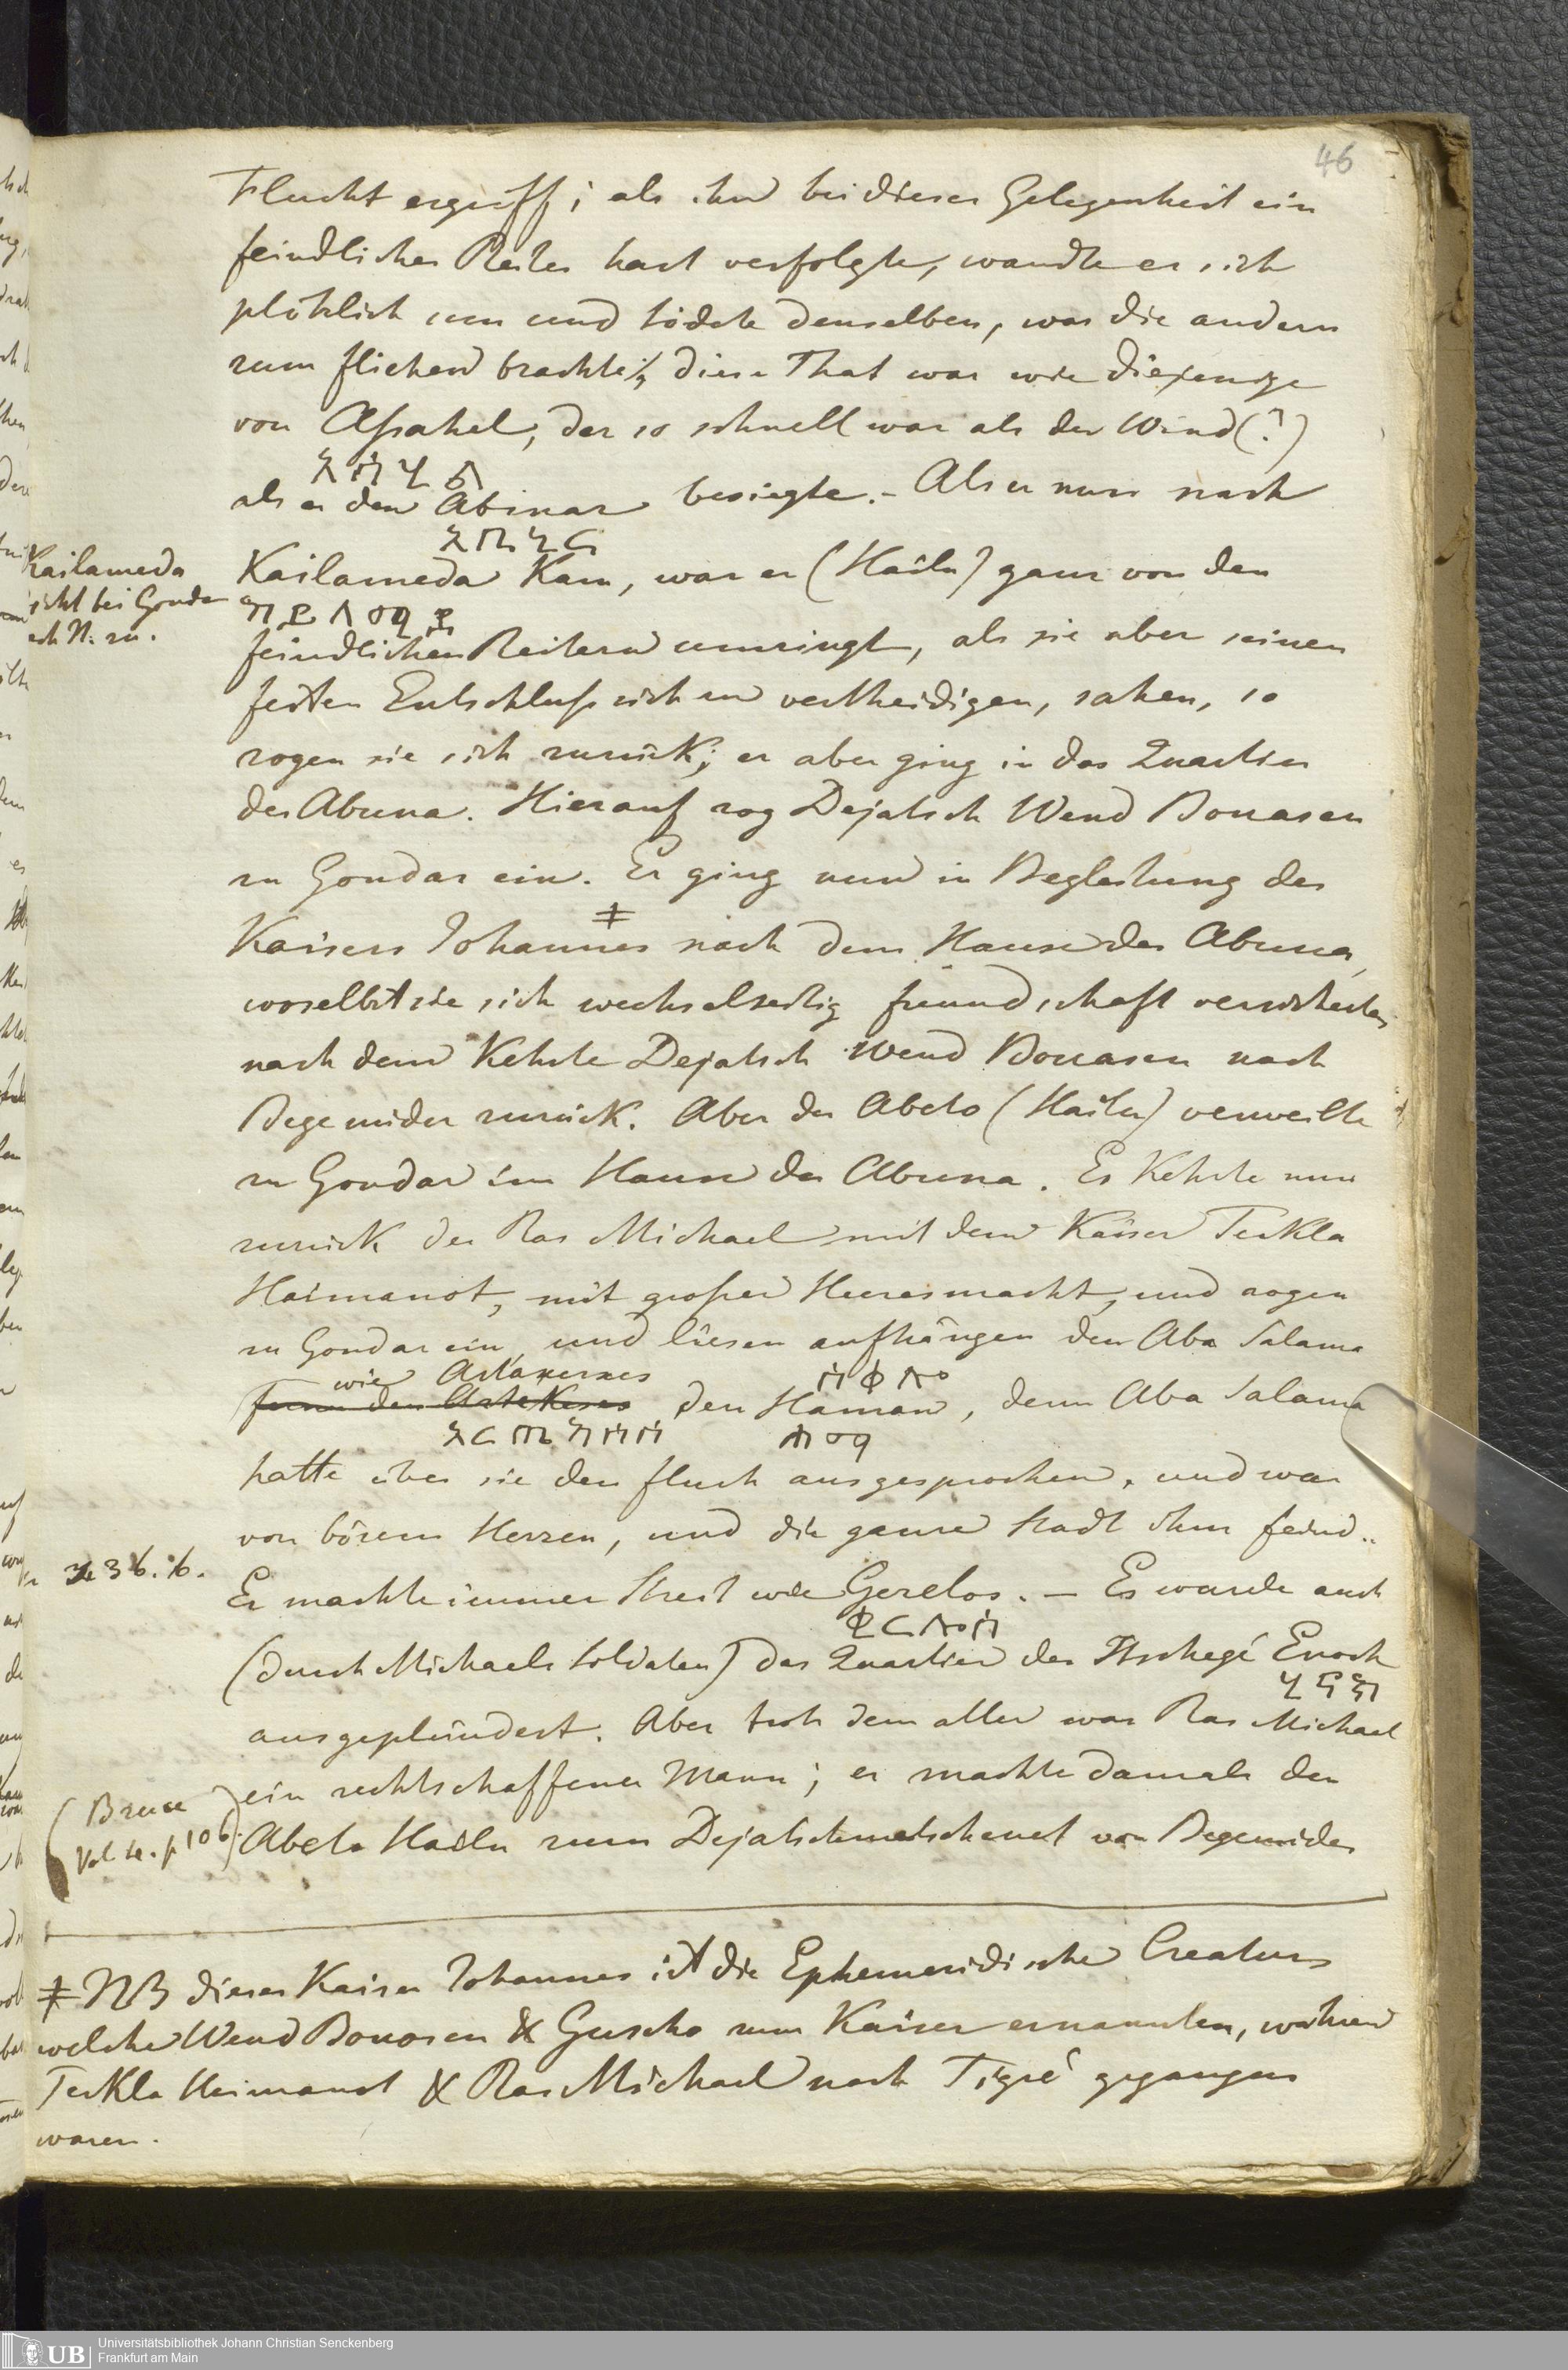 46
Flucht ergriff; als ihn bei dieser Gelegenheit ein
feindlicher Reiter hart verfolgte, wandte er sich
plötzlich um und tödete denselben, was die andern
zum fliehen brachte; diese That war wie diejenige
von Aſsahel, der so schnell war als der Wind (?)
አሣሄል
als er den Abinar besiegte. – Als er nun nach
አቤኔር
Kailameda
nach N. zu.
Kailameda kam, war er (Hailu) ganz von den
feindlichen Reitern umringt, als sie aber seinen
festen Entschluſs sich zu vertheidigen, sahen, so
zogen sie sich zurück; er aber ging in das Quartier
des Abuna. Hierauf zog Dejatsch Wend Bouasen
in Gondar ein. Er ging nun in Begleitung des
Kaisers Johannes ‡ nach dem Hause des Abuna,
woselbst sie sich wechselseitig freundschaft versicherten,
nach dem kehrte Dejatsch Wend Bouasen nach
Begemider zurück. Aber der Abeto (Hailu) verweilte
in Gondar im Hause des Abuna. Es kehrte nun
zurück der Ras Michael mit dem Kaiser Teckla
Haimanot, mit groſser Heeresmacht, und zogen
in Gondar ein, und liesen aufhängen den Aba Salama
wie Artaxerxes
den Haman, denn Aba Salama
hatte über sie den fluch ausgesprochen, und war
von bösem Herzen, und die ganze Stadt ihm feind.
Er machte immer Streit wie Gerelos. – Es wurde auch
ቄርሎስ
(durch Michaels Soldaten) das Quartier des Itschegé Enoch
ሄኖክ
ausgeplündert. Aber trotz dem allen war Ras Michael
ein rechtschaffener Mann; er machte damals den
(Bruce
Vol 4. p 106)
Abeto Hailu zum Dejatschmatschenet von Begemider
‡ NB dieser Kaiser Johannes ist die Ephemeridische Creatur
welche Wend Bouosen & Guscho zum Kaiser ernannten, während
Teckla Heimanot & Ras Michael nach Tigré gegangen
waren.
Universitätsbibliothek Johann Christian Senckenberg
Frankfurt am Main
UB